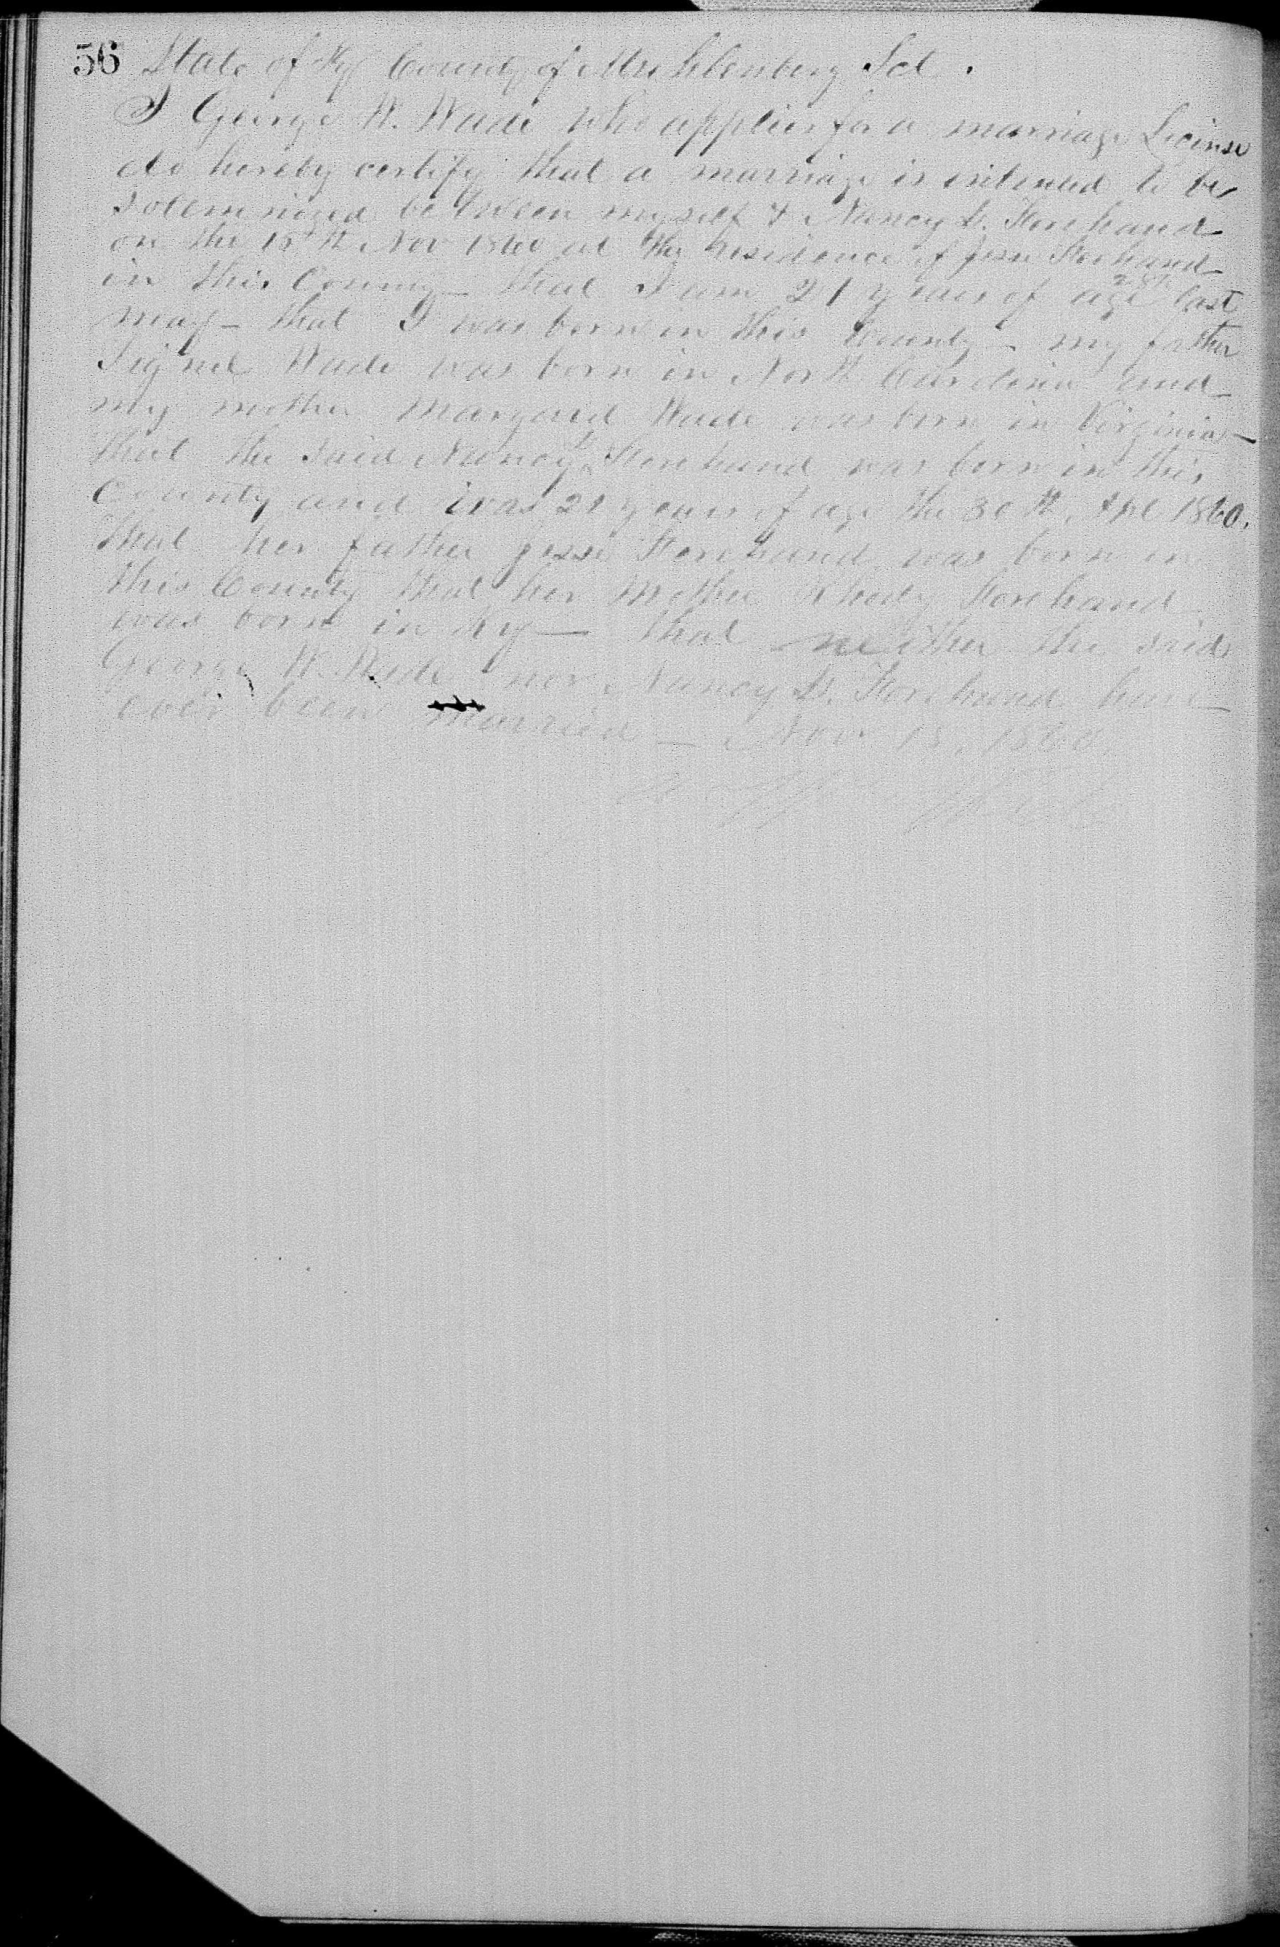 56 State of Ky County of Muhlenberg Sct.
I George W. Wade who applies for a marriage License
do hereby certify that a marriage is intended to be
Solemnized between myself & Nancy D. Forehand
on the 15th Nov 1860 at the Residence of Jesse Forehand
in this County - that I am 21 years of age last
may - that I was born in this County - my father
Wade was born in North Carolina and
my mother Margaret Wade was born in Virginia -
that the said Nancy Forehand was born in this
County and was 21 years of age the 30th Apl 1860.
that her father Jesse Forehand was born in
this County that her Mother Rhody Forehand
was born in Ky - that neither the said
George W. Wade nor Nancy D. Forehand have
ever been married - Nov 15, 1860
Wade